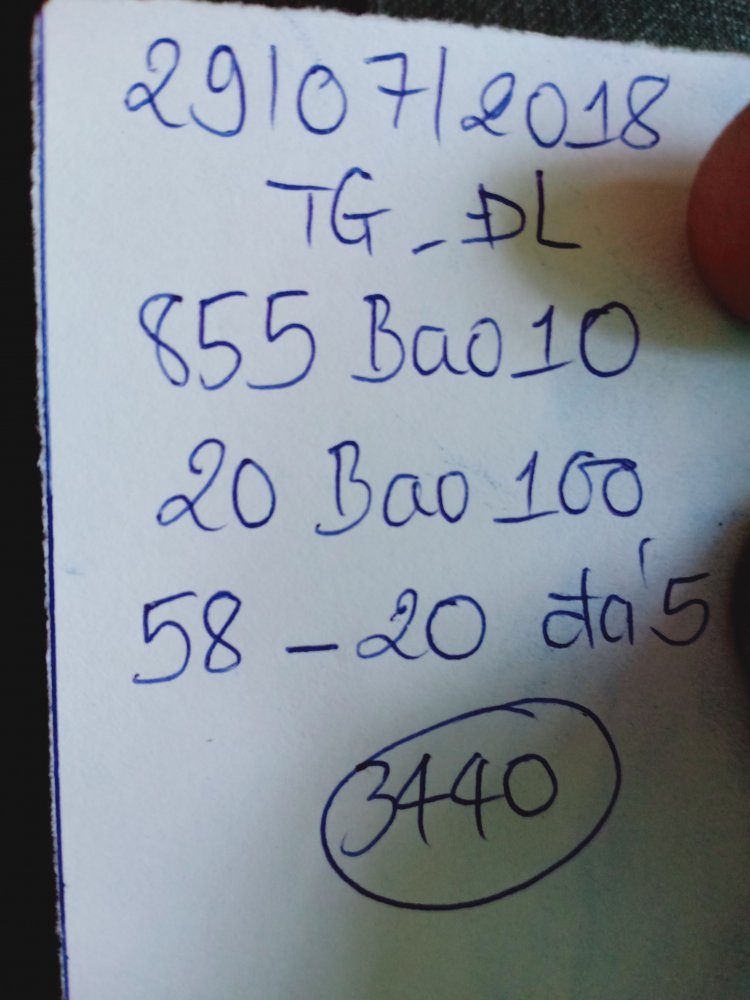 29/07/2018
TG - ĐL
855 Bao 10
20 Bao 100
58 - 20 đá 5
3440